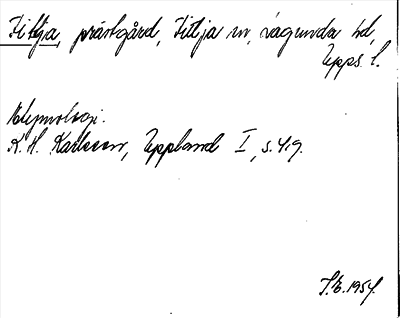 Fittja, prästgård, Fittja sn, Lagunda hd,
Upps. l.
Etymologi.
K. H. Karlsson, Uppland I, s. 419.
1954.